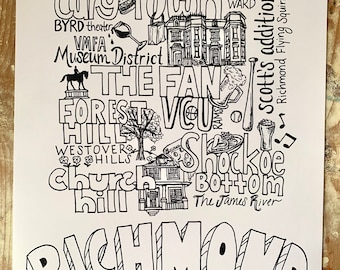 Carytown
WARD
BYRD theater
VMFA
Museum District
Scott's addition
Richmond Flying Squirr
THE FAN
FOREST
HILL
VCU
RAMS
WESTOVER
HILLS
Shockoe
BOTTOM
Church
hill
The James River
RICHMOND